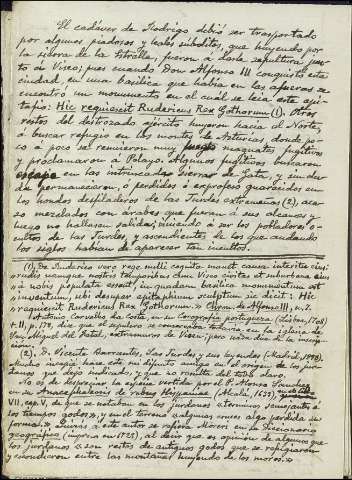 El cadáver de Rodrigo debió ser trasportado
por algunos piadosos y leales súbditos, que huyendo por
la sierra de la Estrella, fueron á darle sepultura junto
á Viseo; pues cuando Don Alfonso III conquistó esta
ciudad, en una basílica que había en las afueras se
encontró un monumento en el cual se leía este epi-
tafio: Hic requiescit Rudericus Rex Gothorum (1). Otros
restos del destrozado ejército huyeron hacia el Norte,
á buscar refugio en los montes de Asturias, donde po-
co á poco se reunieron muy magnates fugitivos
y proclamaron á Pelayo. Algunos fugitivos buscaron
escape en las intrincadas sierras de Gata, y sin du-
da permanecieron, ó perdidos ó exprofeso guarecidos en
los hondos despladeros de las Jurdes extremeñas (2), aca-
so mezclados con árabes que fueran á sus alcances y
luego no hallasen salida; viniendo á ser los pobladores o-
cultos de las Jurdes, y ascendientes de los que andando
los siglos habían de aparecer tan incultos.
(1). De Ruderico vero rege nulli cognita manet causa interitus ejus:
rudis namque nostris temporibus cum Viseo civitas et suburbana ejus
à nobis populata esset, in quadam basilica monumentum est
inventum, ubi desuper epitaphium sculptum sic dicit: Hic
requiescit Rudericus Rex Gothorum.» Chron. de Alfonso III, n. 7.
Antonio Carvalho da Costa, en su Corografía portuguesa (Lisboa, 1708)
t. II, p. 178, dice que el sepulcro se conservaba todavía en la iglesia de
San Miguel del Fetal, extramuros de Viseo; pero nada dice de la inscrip-
(2). D. Vicente Barrantes, Las Jurdes y sus leyendas (Madrid, 1893),
que dejo indicado, y que no resulta del todo claro.
No es de despreciar la especie vertida por el P. Alonso Sanchez
en su Anacephaleosis de rebus Hispaniae (Alcalá, 1633),
VII, cap. V, de que se notaban en los jurdanos «términos semejantes á
los tiempos godos», y en el terreno «algunas cruces algo perdida su
forma.» Quizás á este autos se refiera Moreri en su Diccionario
geográfico (impreso en 1725), al decir que es opinión de algunos que
los jurdanos «son restos de antiguos godos que se refugiaron
y escondieron entre las montañas, huyendo de los moros.»